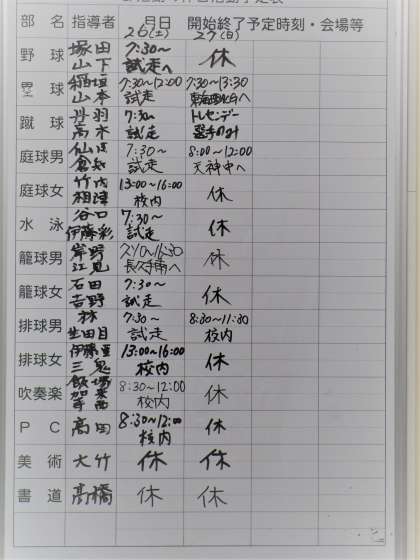 部 名 指導者 月日 開始終了予定時刻・会場等
26(土) 27(日)
野 球 塚田 7:30〜 休
山下 試走へ
塁 球 稲垣 7:30〜12:00 7:30〜13:30
山本 試走
蹴 球 丹羽 7:30〜 トレセンデー
高木 試走 選手のみ
庭球男 7:30〜 8:00〜12:00
試走へ 天神中へ
庭球女 竹内 13:00〜16:00 休
相津 校内
水 泳 谷口 7:30〜 休
伊藤彩 試走
籠球男 岸野 休
江見 長久手南へ
籠球女 石田 7:30〜 休
吉野 試走
排球男 林 7:30〜 8:30〜11:30
生田目 試走 校内
排球女 伊藤里 13:00〜16:00 休
三鬼 校内
吹奏楽 飯場 8:30〜12:00 休
校内
P C 高田 8:30〜12:00 休
校内
美 術 大竹 休 休
書 道 高橋 休 休